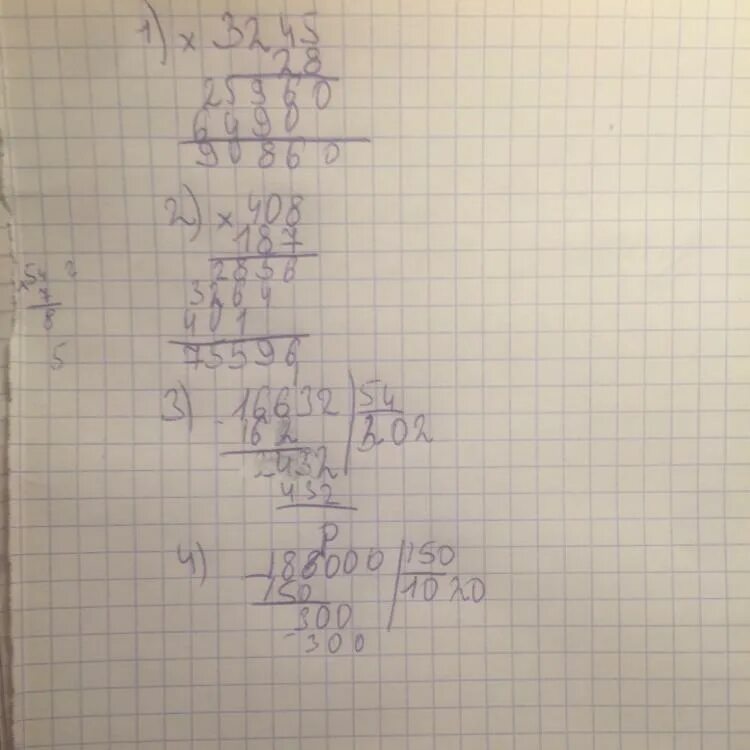 1) × 3245
28
25960
6490
90860
2) × 408
187
2856
3264
401
75596
3) - 16632 | 54
162 | 302
432
432
0
4) - 188000 | 150
150 | 1020
300
- 300